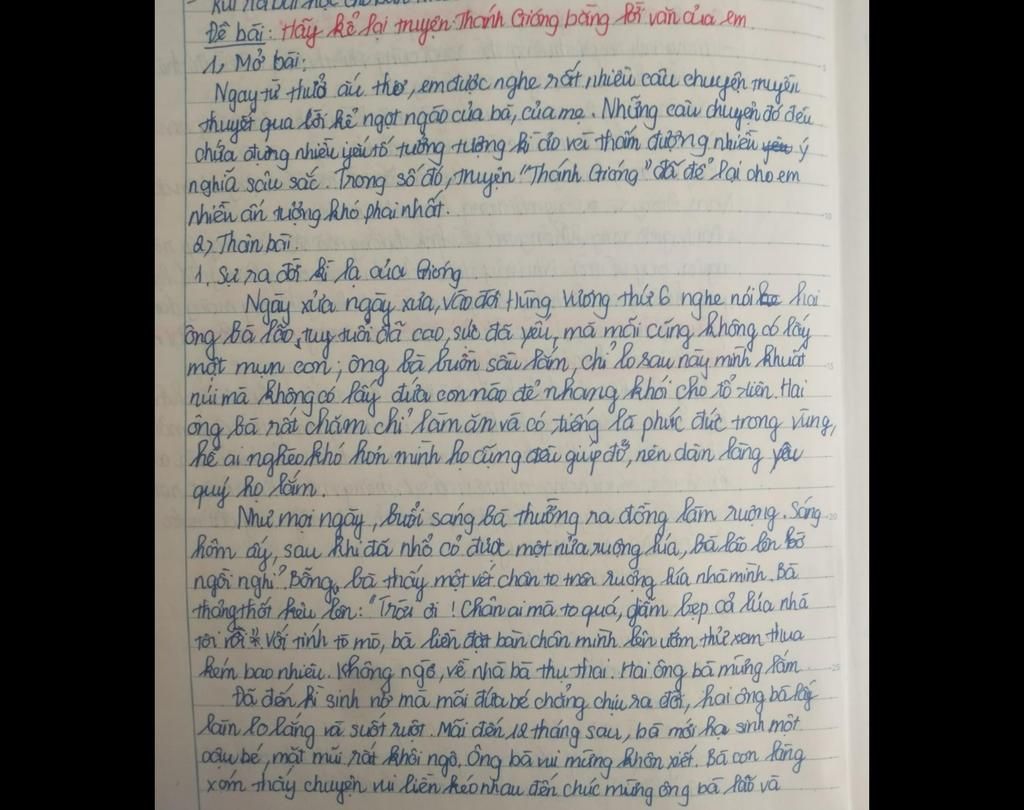 - Rút ra bài học cho bản
Đề bài: Hãy kể lại truyện Thánh Gióng bằng lời văn của em
1, Mở bài:
Ngay từ thuở ấu thơ, em được nghe rất nhiều câu chuyện truyền
thuyết qua lời kể ngọt ngào của bà, của mẹ. Những câu chuyện đó đều
chứa đựng nhiều yếu tố tưởng tượng kì ảo với thấm đượng nhiều ý
nghĩa sâu sắc. Trong số đó, truyện "Thánh Gióng" đã để lại cho em
nhiều ấn tượng khó phai nhất.
2, Thân bài:
1. Sự ra đời kì lạ của Gióng
Ngày xửa ngày xưa, vào đời Hùng Vương thứ 6 nghe nói hai
ông bà lão, tuy tuổi đã cao, sức đã yếu, mà mãi cũng không có lấy
một mụn con; ông bà buồn sầu lắm, chỉ lo sau này mình khuất
núi mà không có lấy đứa con nào để nhang khói cho tổ tiên. Hai
ông bà rất chăm chỉ làm ăn và có tiếng là phúc đức trong vùng,
hễ ai nghèo khó hơn mình họ cũng đều giúp đỡ, nên dân làng yêu
quý họ lắm.
Như mọi ngày, buổi sáng bà thường ra đồng làm ruộng. Sáng
hôm ấy, sau khi đã nhổ cỏ được một nửa ruộng lúa, bà lão lên bờ
ngồi nghỉ. Bỗng, bà thấy một vết chân to trên ruộng lúa nhà mình. Bà
thảng thốt kêu lên: "Trời ơi! Chân ai mà to quá, giẫm bẹp cả lúa nhà
tôi rồi". Với tính tò mò, bà liền đặt bàn chân mình lên ướm thử xem thua
kém bao nhiêu. Không ngờ, về nhà bà thụ thai. Hai ông bà mừng lắm
Đã đến kì sinh nở mà mãi đứa bé chẳng chịu ra đời, hai ông bà lấy
làm lo lắng và suốt ruột. Mãi đến 12 tháng sau, bà mới hạ sinh một
cậu bé, mặt mũi rất khôi ngô. Ông bà vui mừng khôn xiết. Bà con làng
xóm thấy chuyện vui liền kéo nhau đến chúc mừng ông bà lão và